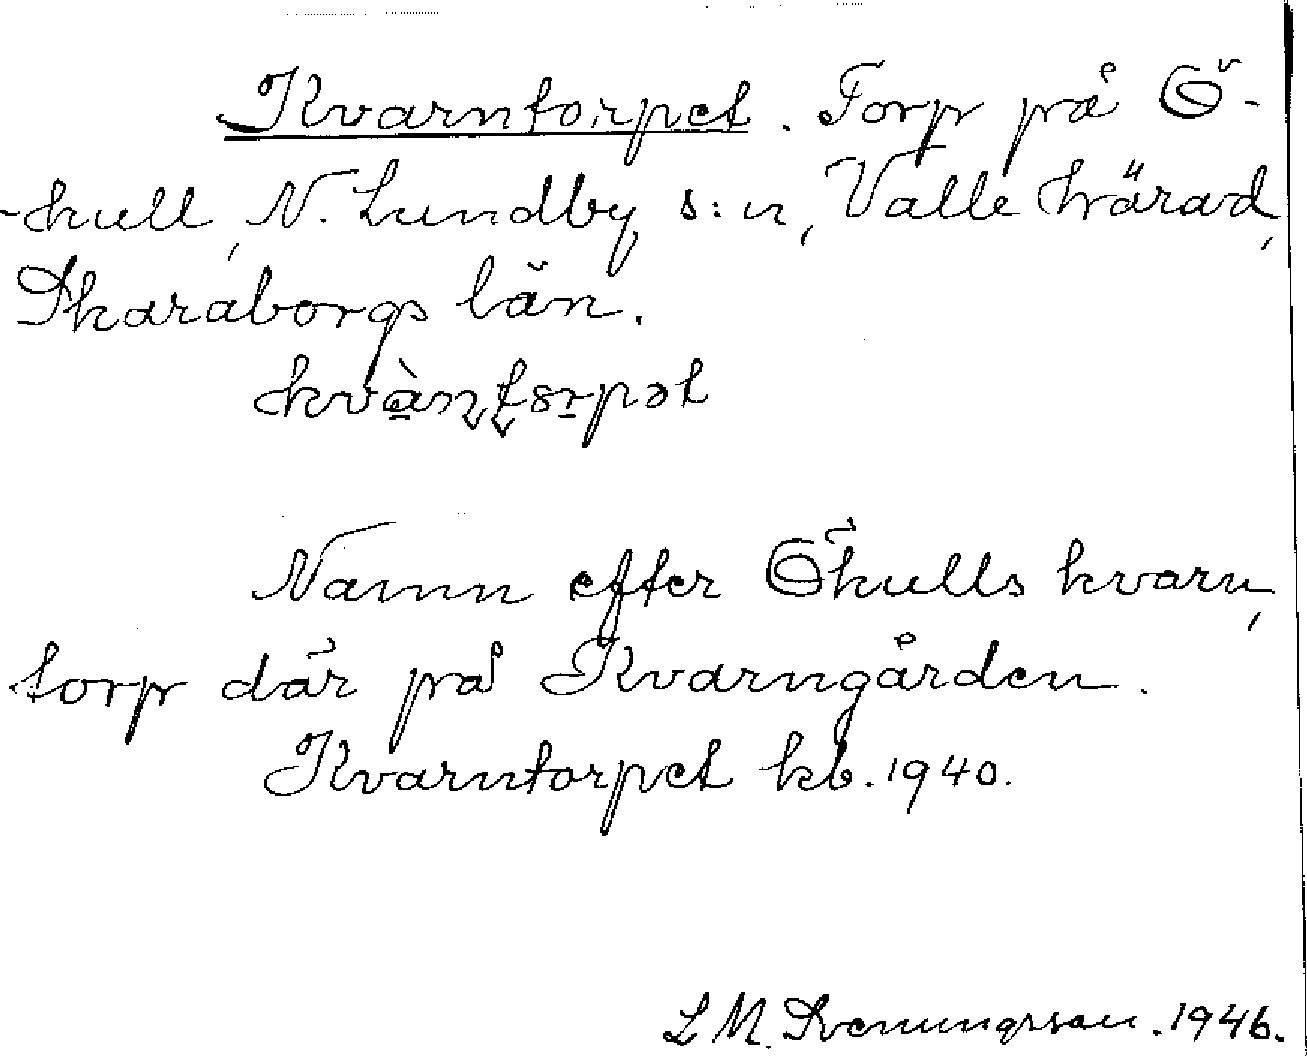 Kvarntorpet. Torp på Ö-
-kull, N. Lundby s:n, Valle härad,
Skaraborgs län.
Namn efter Ökulls kvarn,
torp där på Kvarngården.
Kvarntorpet kb. 1940.
L M. Svenungsson. 1946.